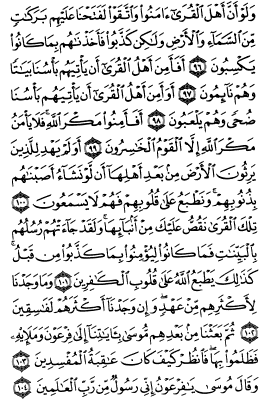 وَلَوْ أَنَّ أَهْلَ ٱلْقُرَىٰٓ ءَامَنُوا۟ وَٱتَّقَوْا۟ لَفَتَحْنَا عَلَيْهِم بَرَكَٰتٍ
مِّنَ ٱلسَّمَآءِ وَٱلْأَرْضِ وَلَٰكِن كَذَّبُوا۟ فَأَخَذْنَٰهُم بِمَا كَانُوا۟
يَكْسِبُونَ ٩٦ أَفَأَمِنَ أَهْلُ ٱلْقُرَىٰٓ أَن يَأْتِيَهُم بَأْسُنَا بَيَٰتًا
وَهُمْ نَآئِمُونَ ٩٧ أَوَأَمِنَ أَهْلُ ٱلْقُرَىٰٓ أَن يَأْتِيَهُم بَأْسُنَا
ضُحًى وَهُمْ يَلْعَبُونَ ٩٨ أَفَأَمِنُوا۟ مَكْرَ ٱللَّهِ فَلَا يَأْمَنُ
مَكْرَ ٱللَّهِ إِلَّا ٱلْقَوْمُ ٱلْخَٰسِرُونَ ٩٩ أَوَلَمْ يَهْدِ لِلَّذِينَ
يَرِثُونَ ٱلْأَرْضَ مِنۢ بَعْدِ أَهْلِهَآ أَن لَّوْ نَشَآءُ أَصَبْنَٰهُم
بِذُنُوبِهِمْ وَنَطْبَعُ عَلَىٰ قُلُوبِهِمْ فَهُمْ لَا يَسْمَعُونَ ١٠٠
تِلْكَ ٱلْقُرَىٰ نَقُصُّ عَلَيْكَ مِنْ أَنۢبَآئِهَا وَلَقَدْ جَآءَتْهُمْ رُسُلُهُم
بِٱلْبَيِّنَٰتِ فَمَا كَانُوا۟ لِيُؤْمِنُوا۟ بِمَا كَذَّبُوا۟ مِن قَبْلُ
كَذَٰلِكَ يَطْبَعُ ٱللَّهُ عَلَىٰ قُلُوبِ ٱلْكَٰفِرِينَ ١٠١ وَمَا وَجَدْنَا
لِأَكْثَرِهِم مِّنْ عَهْدٍ وَإِن وَجَدْنَآ أَكْثَرَهُمْ لَفَٰسِقِينَ
١٠٢ ثُمَّ بَعَثْنَا مِنۢ بَعْدِهِم مُّوسَىٰ بِـَٔايَٰتِنَآ إِلَىٰ فِرْعَوْنَ وَمَلَإِي۟هِۦ
فَظَلَمُوا۟ بِهَا فَٱنظُرْ كَيْفَ كَانَ عَٰقِبَةُ ٱلْمُفْسِدِينَ
١٠٣ وَقَالَ مُوسَىٰ يَٰفِرْعَوْنُ إِنِّى رَسُولٌ مِّن رَّبِّ ٱلْعَٰلَمِينَ ١٠٤